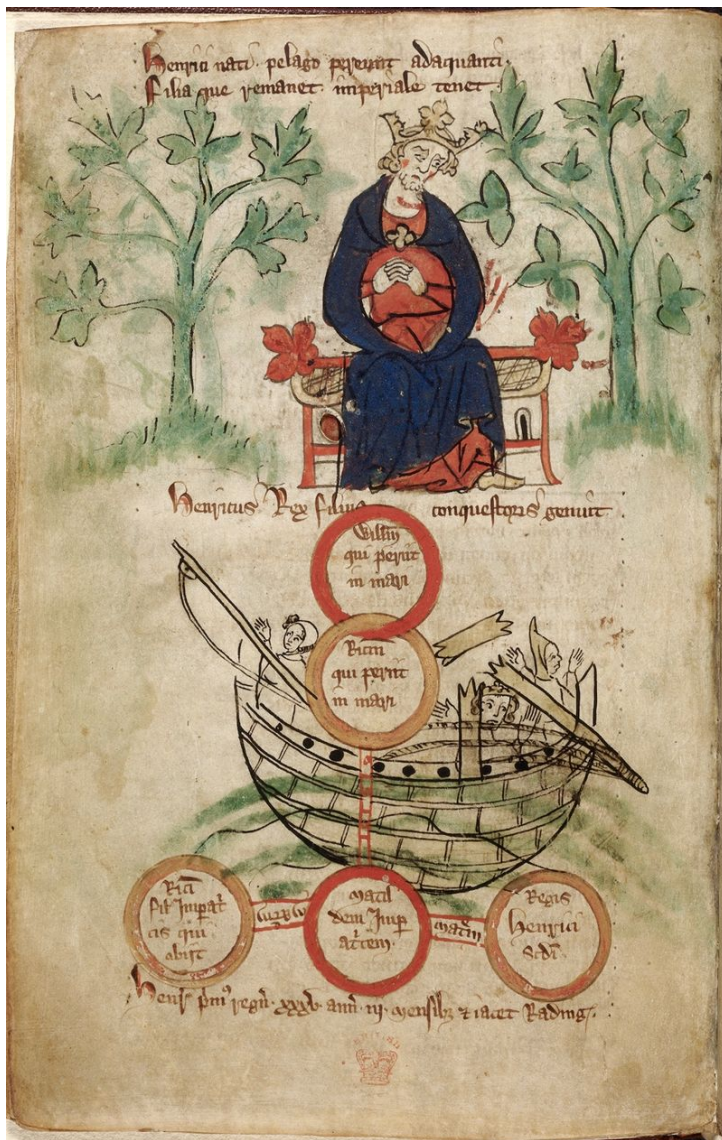 Henrici nati · pelago perierunt adaquanti ·
Filia que remanet · imperiale tenet ·
Henricus Rex filius conquestoris genuit
Willm
qui perit
in mari
Ricm
qui perit
in mari
Rici
fil Impat
cis qui
obiit
Matil
dem Imp
atcem ·
matm
Regis
Henrici
Scdi ·
Henr pm regn xxxv ann iii mensibz & iacet Rading